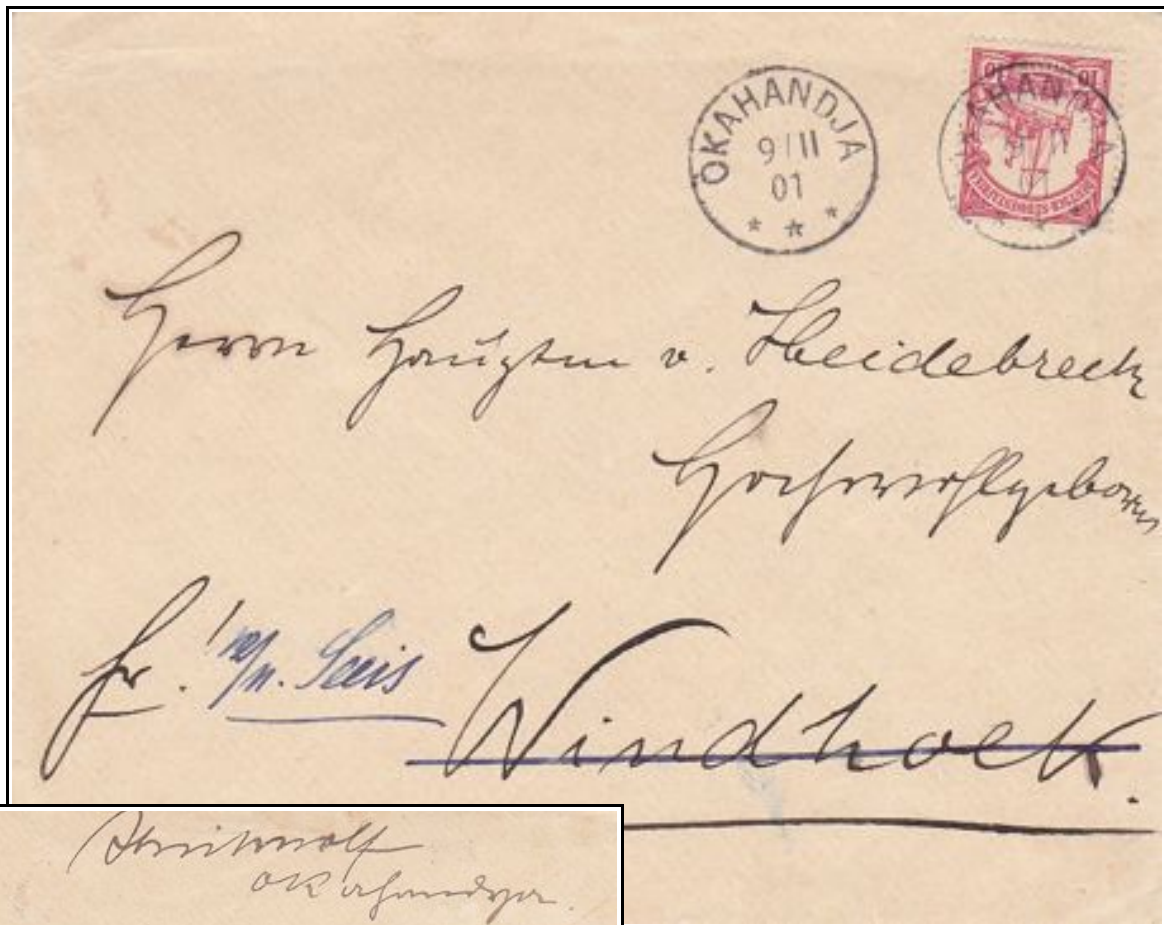 OKAHANDJA
9/11
01
10 10
OKAHANDJA
01
Herrn Hauptm v. Heidebreck
Hochwohlgeboren
fr. Seis
Windhoek.
Streitwolf
Okahandya.